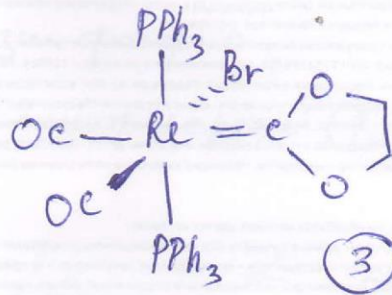 PPh3
Br
O
OC Re = C
O
OC
PPh3
3